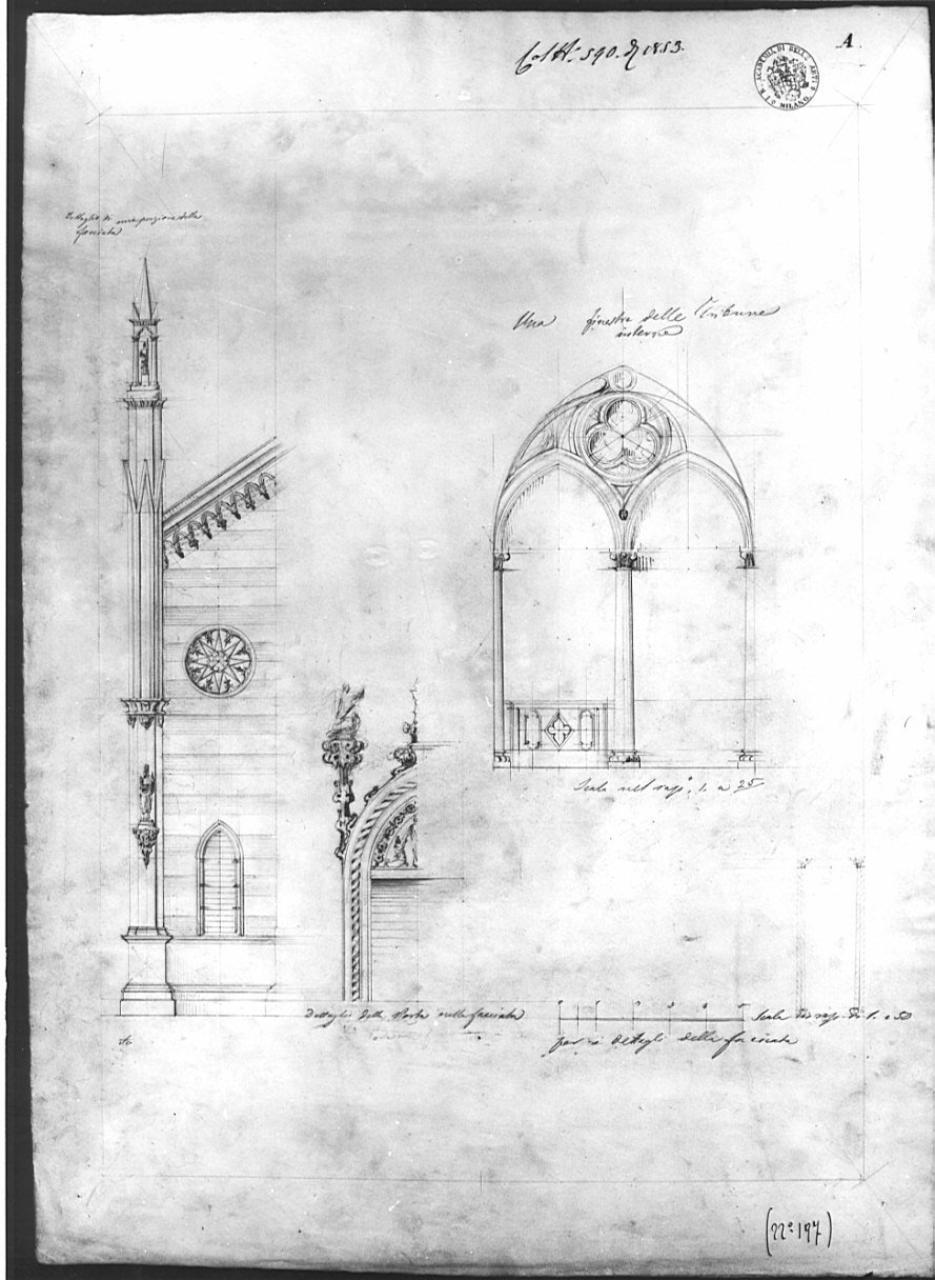 Col N.° 590. di 1853.
A.
I. R. ACCADEMIA DI BELLE ARTI
DI MILANO
Dettaglio di una porzione della
facciata
Una finestra delle Tribune
interne
Scala nel rapp.° 1. a 25
Dettaglio della Porta nella facciata
Scala nel rapp. di 1. a 50
per i dettagli della facciata
(22° 197)